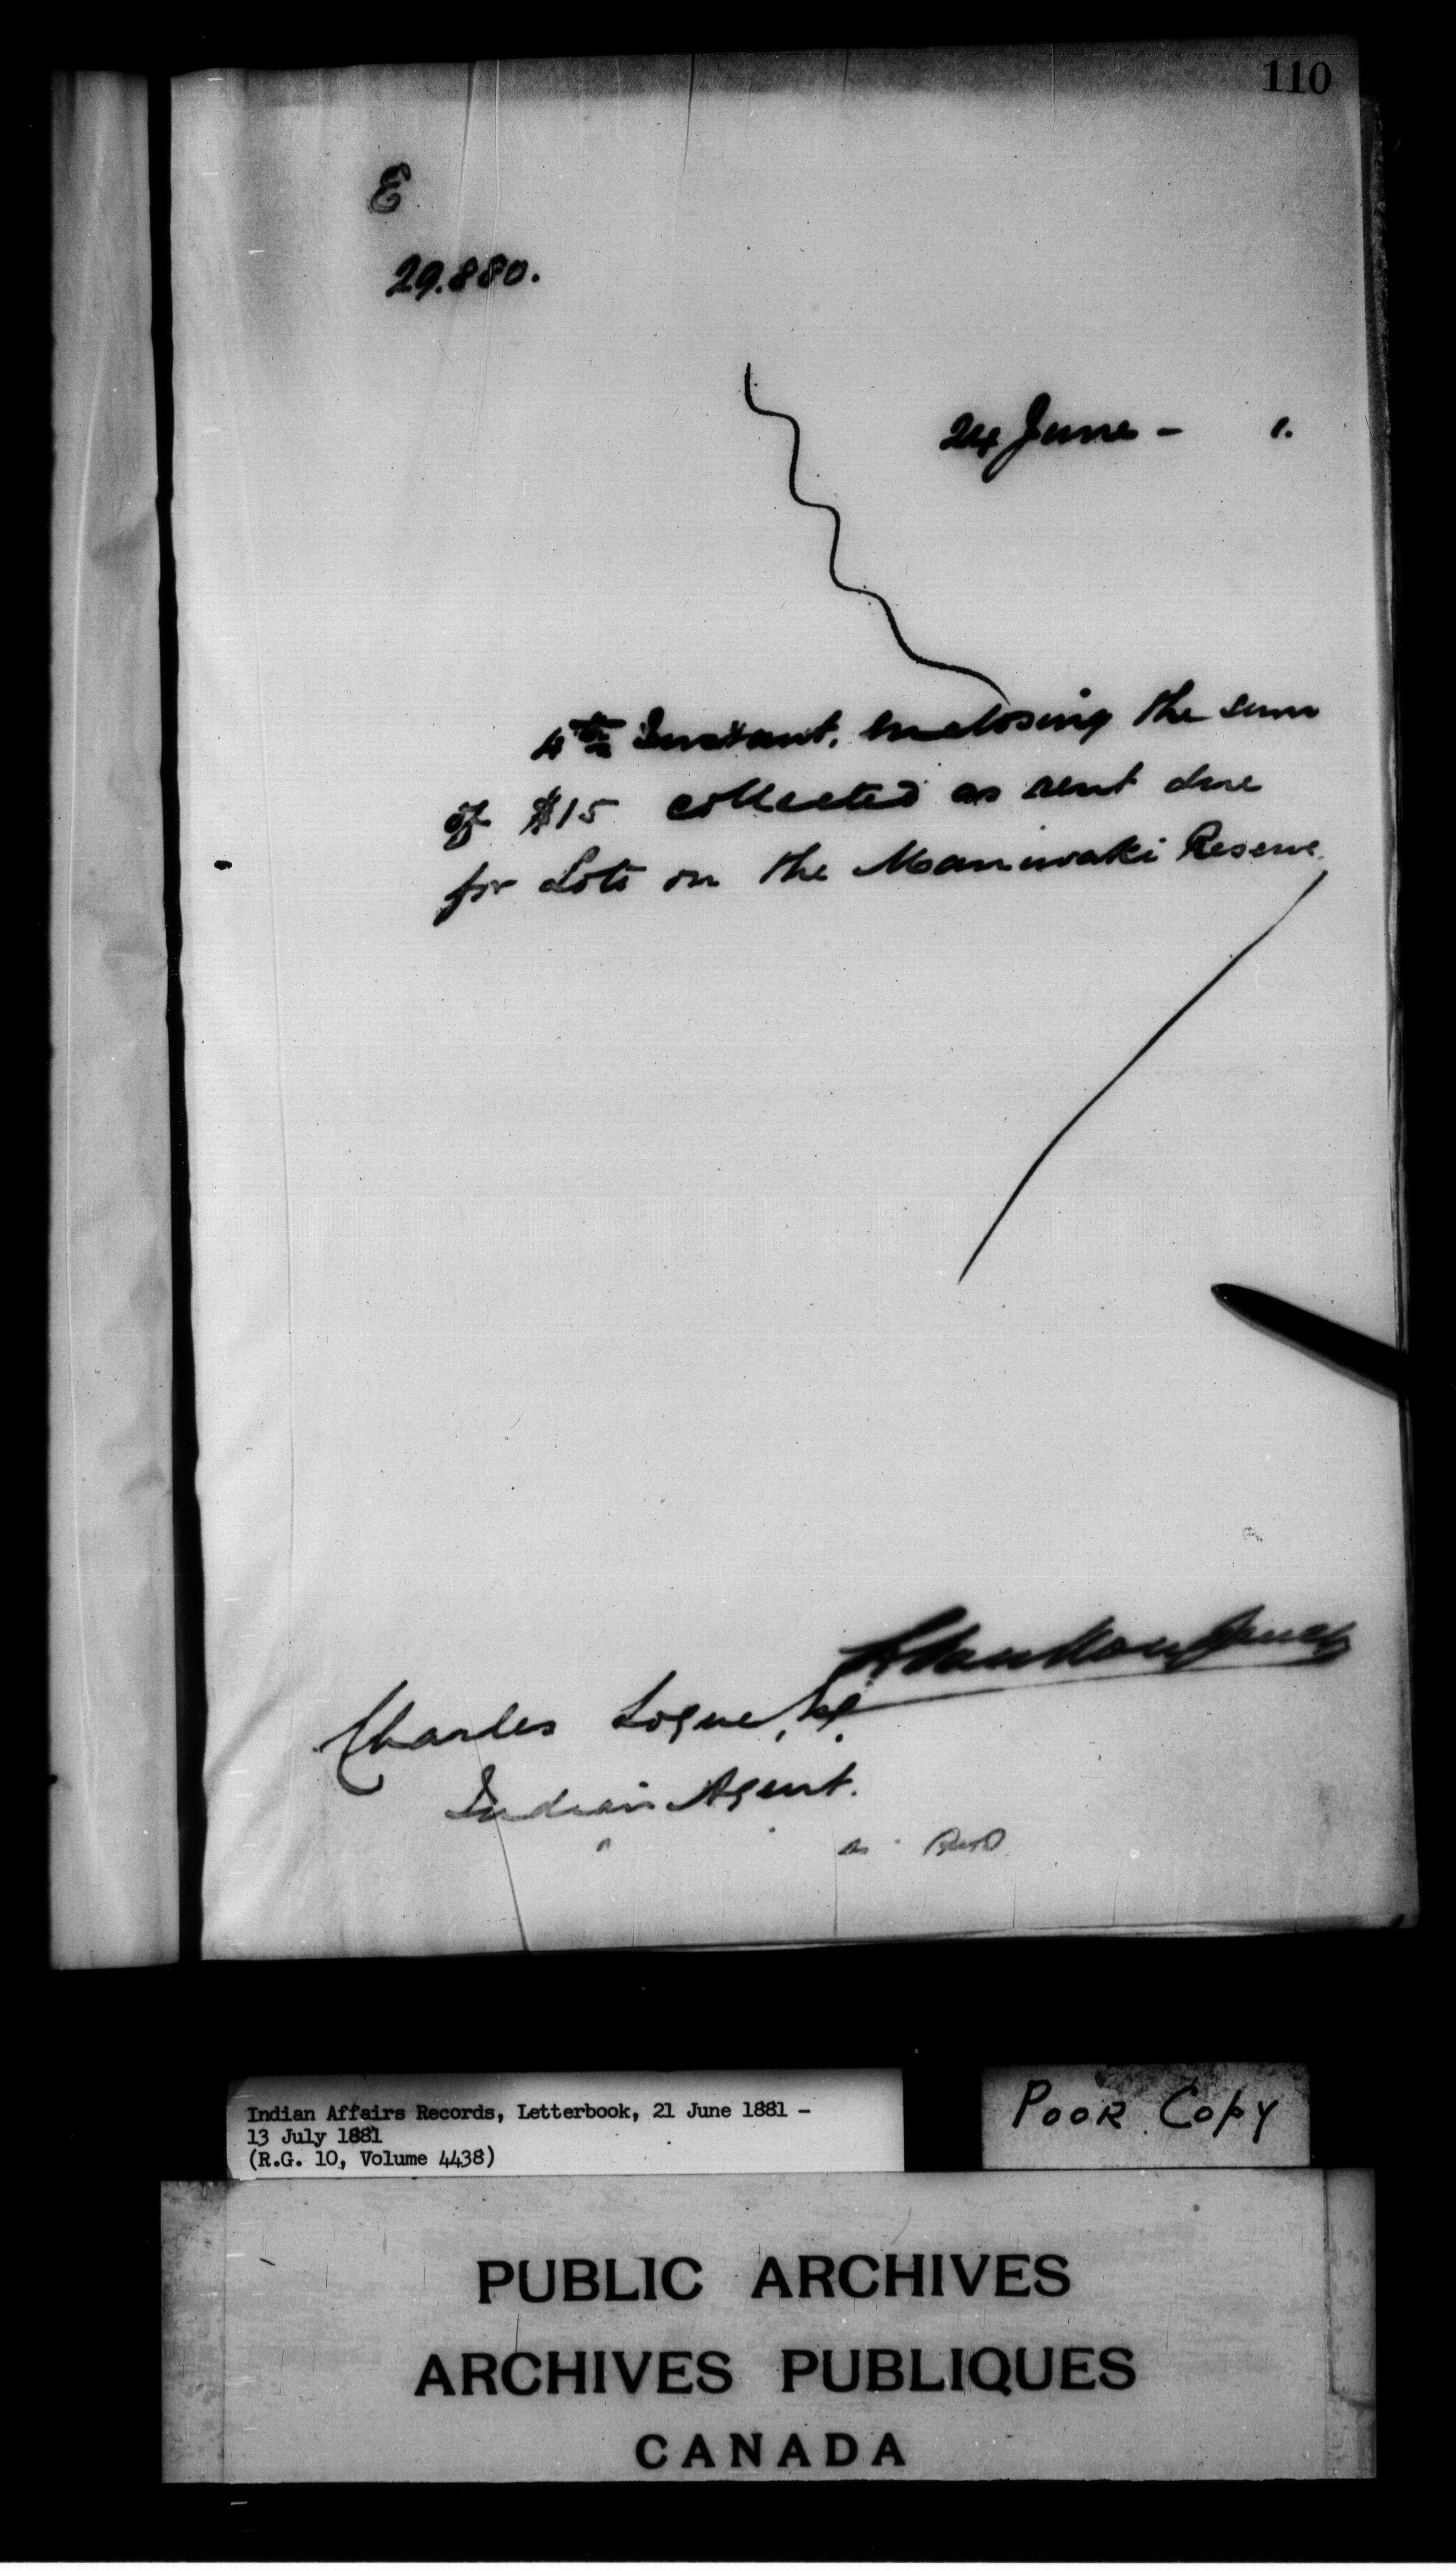 110
E
29.880.
24 June - 1.
4th Instant, enclosing the sum
of $15 collected as rent due
for Lots on the Maniwaki Reserve.
Charles Logue, Esq.
Indian Agent.
Indian Affairs Records, Letterbook, 21 June 1881 -
13 July 1881
(R.G. 10, Volume 4438)
POOR COPY
PUBLIC ARCHIVES
ARCHIVES PUBLIQUES
CANADA